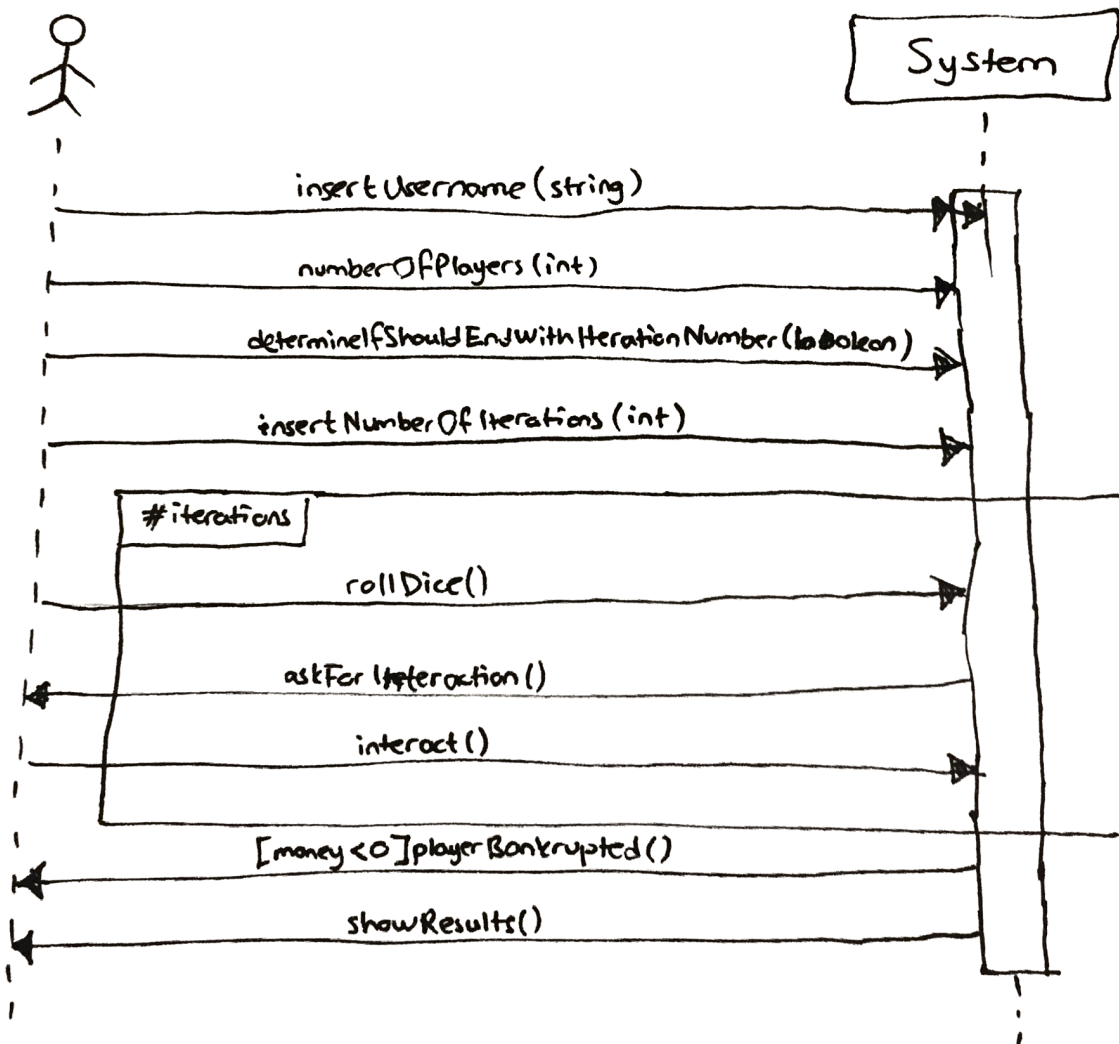 System
insertUsername(string)
numberOfPlayers(int)
determineIfShouldEndWithIterationNumber(boolean)
insertNumberOfIterations(int)
#iterations
rollDice()
askForInteraction()
interact()
[money<0]playerBankrupted()
showResults()